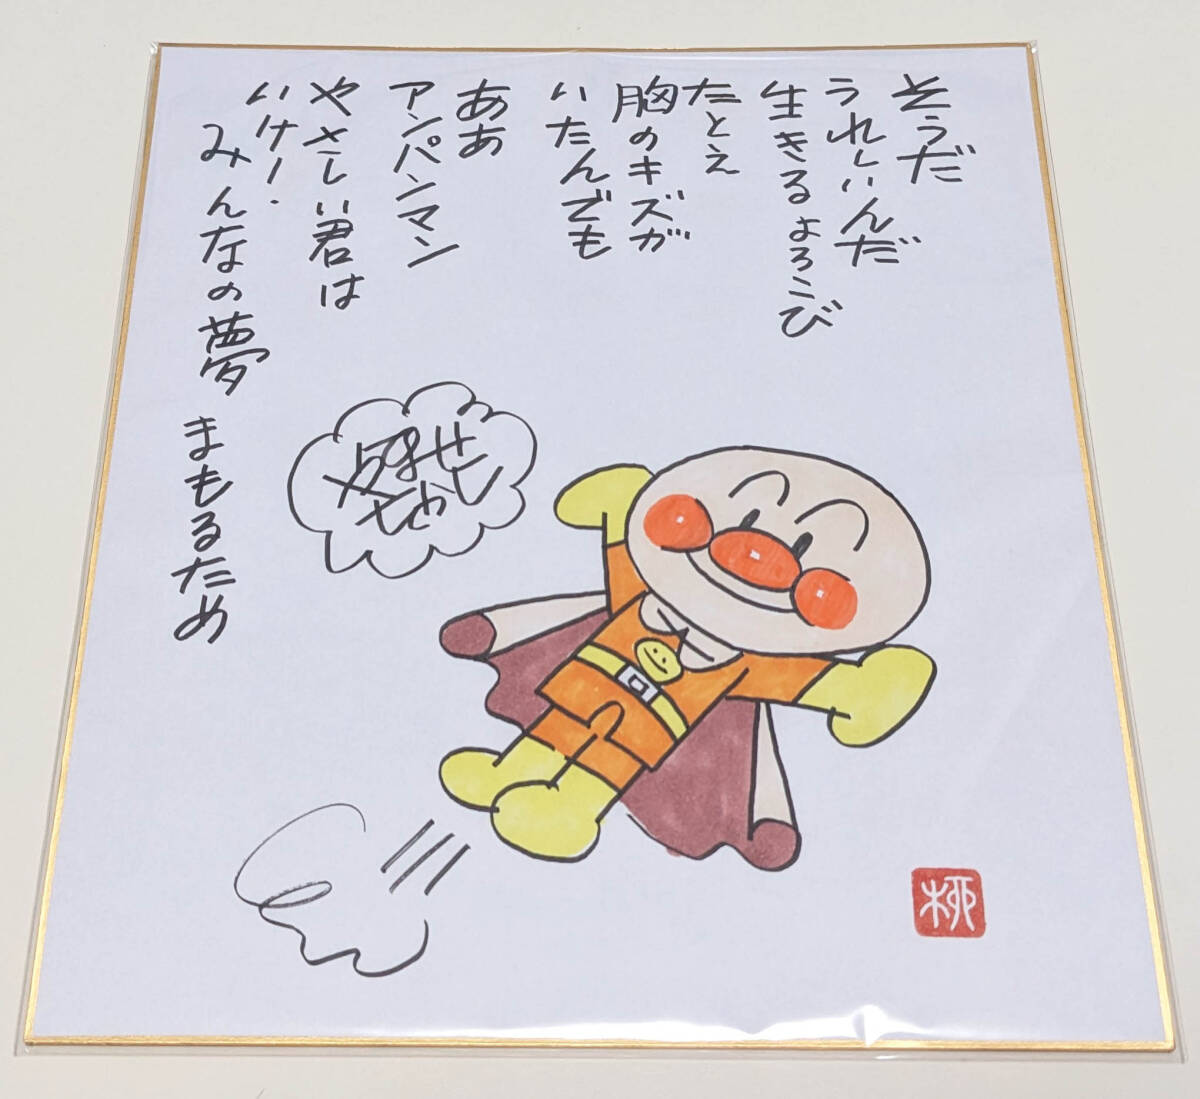 そうだ
うれしいんだ
生きるよろこび
たとえ
胸のキズが
いたんでも
ああ
アンパンマン
やさしい君は
いけ!
みんなの夢 まもるため
柳